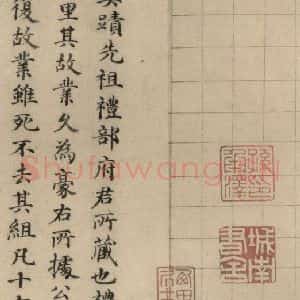 蹟先祖禮部府君所藏也禮
里其故業久為豪右所據公
復故業雖死不去其組凡十
Shufawang.CN
城南
書舍